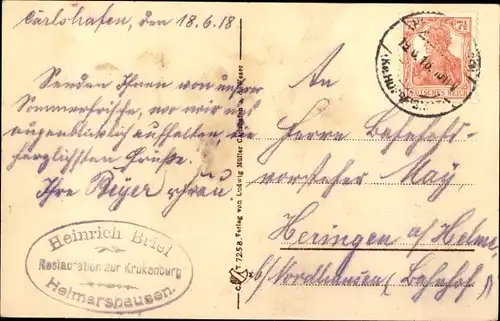 Carlshafen, den 18.6.18
Senden Ihnen von unserer
Sommerfrische, wo wir uns
augenblicklich aufhalten die
herzlichsten Grüße.
Ihre Beyer u. Frau
Heinrich Brief
Restauration zur Krukenburg
Helmarshausen.
7258. Verlag von Ludwig Müller
An
Herrn Bahnhofs-
vorsteher May
Heringen a/ Helme
b/ Nordhausen (Bahnhof)
7½
DEUTSCHES REICH